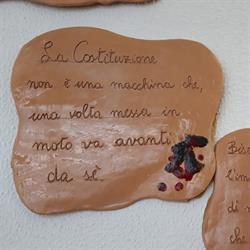 La Costituzione
non è una macchina che,
una volta messa in
moto va avanti
da sè
Bis
l'im
di n
che